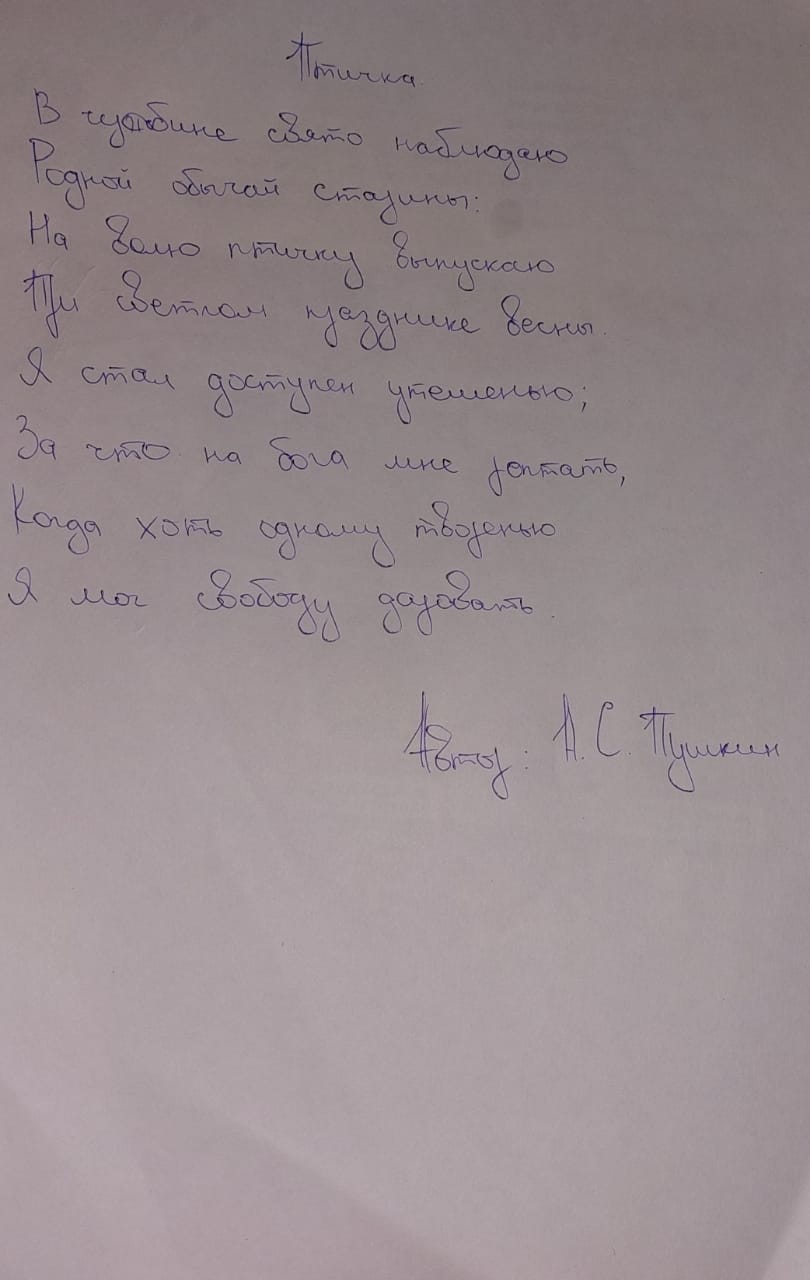 Птичка.
В чужбине свято наблюдаю
Родной обычай старины:
На волю птичку выпускаю
При светлом празднике весны.
Я стал доступен утешенью;
За что на бога мне роптать,
Когда хоть одному творенью
Я мог свободу даровать.
Автор: А. С. Пушкин